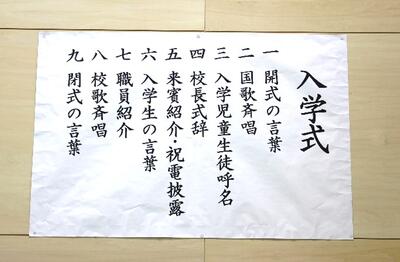 入学式
一 開式の言葉
二 国歌斉唱
三 入学児童生徒呼名
四 校長式辞
五 来賓紹介・祝電披露
六 入学生の言葉
七 職員紹介
八 校歌斉唱
九 閉式の言葉